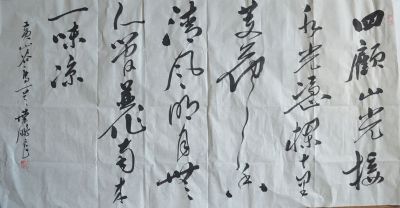 四顾山光接
水光凭栏十里
芰荷香
清风明月无
人管并作南来
一味凉
黄山谷句